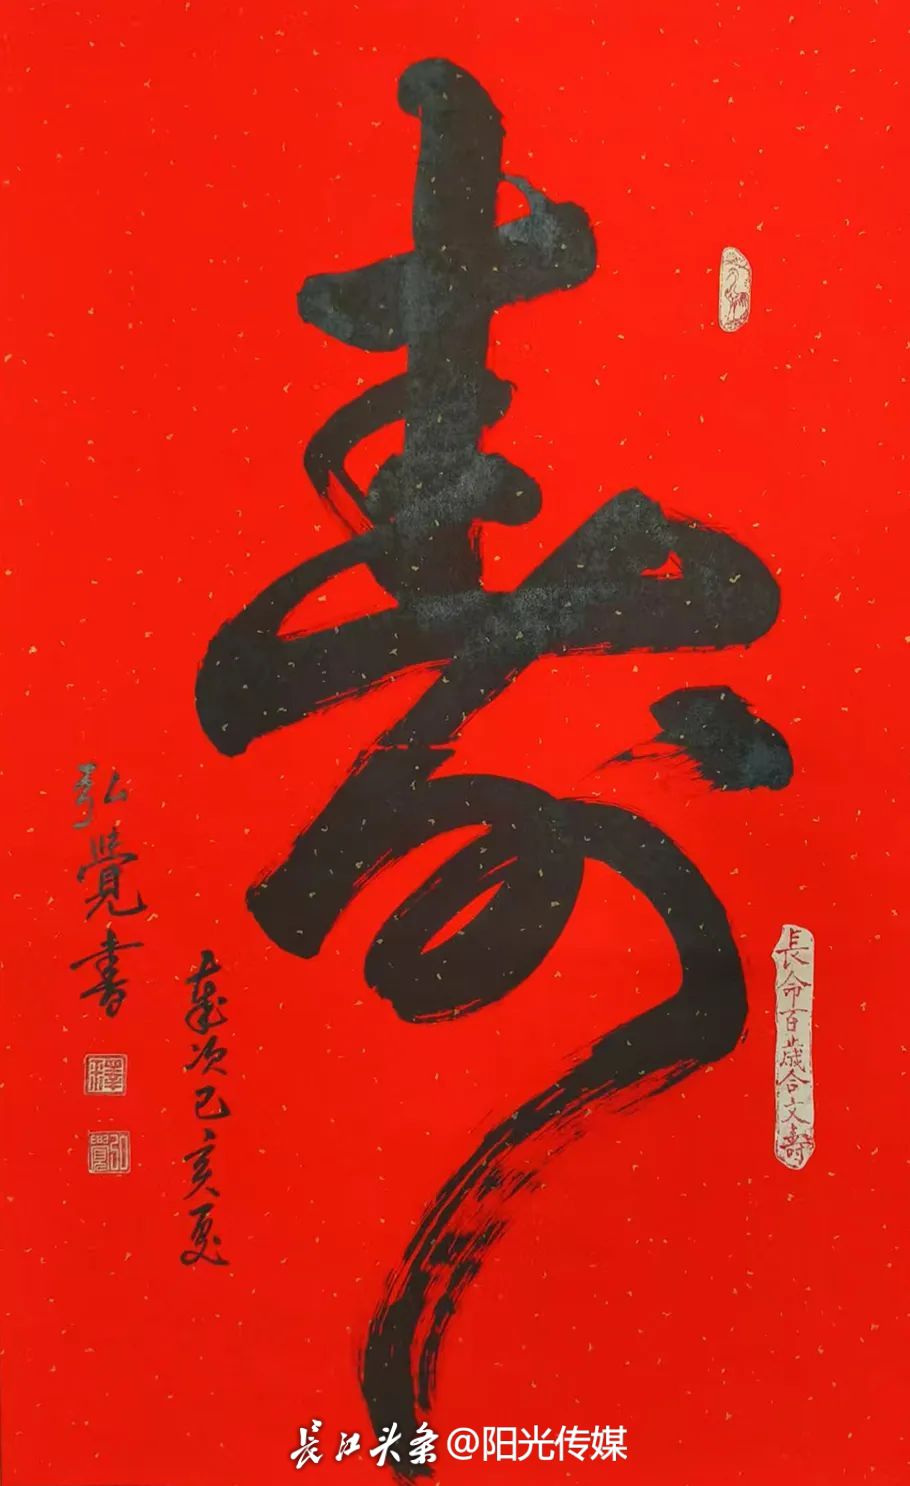 寿
長命百歲合文壽
歲次己亥夏
弘覺書
釋
弘覺
长江头条@阳光传媒